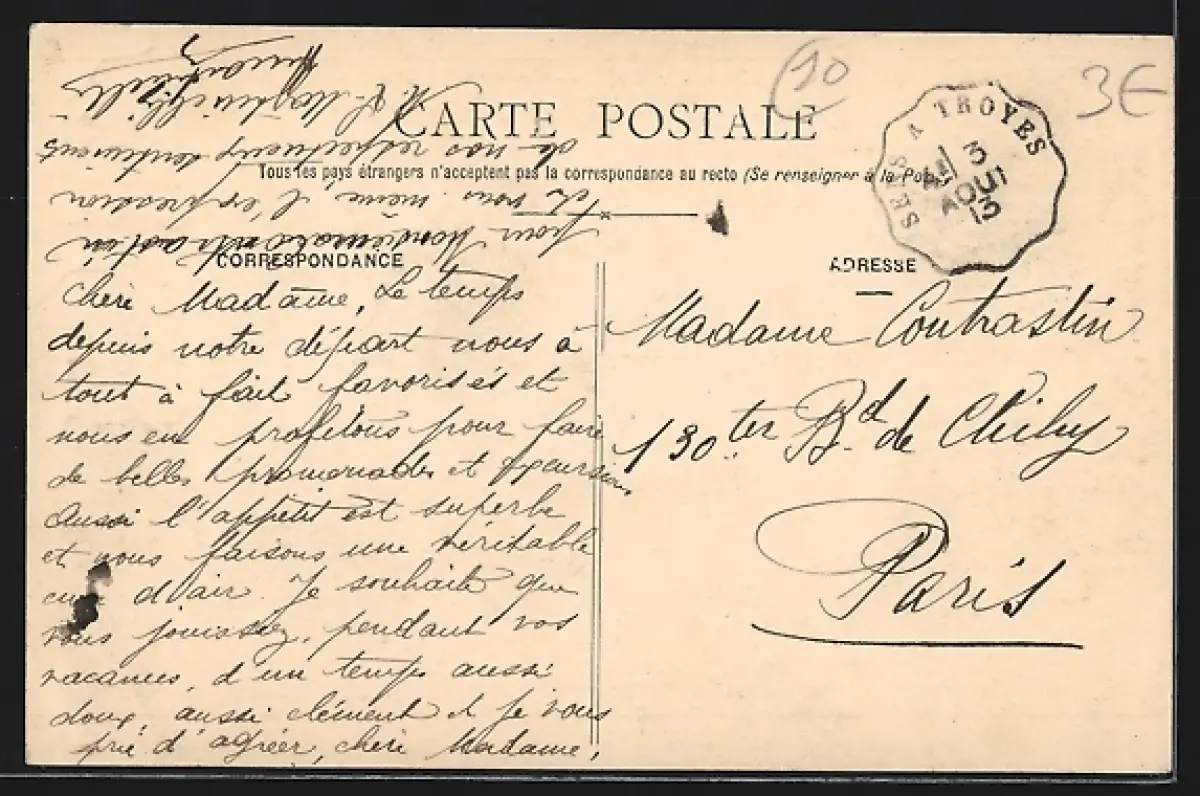 10
3€
CARTE POSTALE
Tous les pays étrangers n'acceptent pas la correspondance au recto (Se renseigner à la Poste)
A TROYES
3
AOUT
13
CORRESPONDANCE
ADRESSE
Chère Madame, Le temps
depuis notre départ nous a
tout à fait favorisés et
nous en profitons pour faire
de belles promenades et excursions
Aussi l'appétit est superbe
et nous faisons une véritable
cure d'air. Je souhaite que
vous jouissiez, pendant vos
vacances, d'un temps aussi
doux, aussi clément et je vous
prie d'agréer, chère Madame,
pour Monsieur Contrastin
et vous même l'expression
de nos respectueux sentiments
Madame Contrastin
130 ter Bd de Clichy
Paris